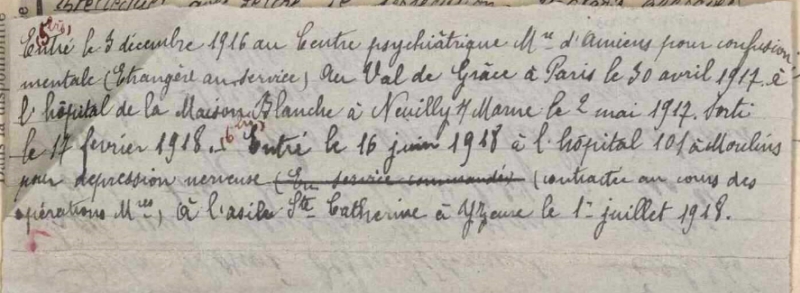 Entré le 3 décembre 1916 au Centre psychiâtrique Mre d'Amiens pour confusion
mentale (Etrangère au service) Au Val de Grâce à Paris le 30 avril 1917. à
l'hôpital de la Maison Blanche à Neuilly s/ Marne le 2 mai 1917. Sorti
le 17 février 1918. Entré le 16 juin 1918 à l'hôpital 101 à Moulins
pour depression nerveuse (En service commandé) (contractée au cours des
opérations Mres) à l'asile Ste Catherine à Yzeure le 1er juillet 1918.